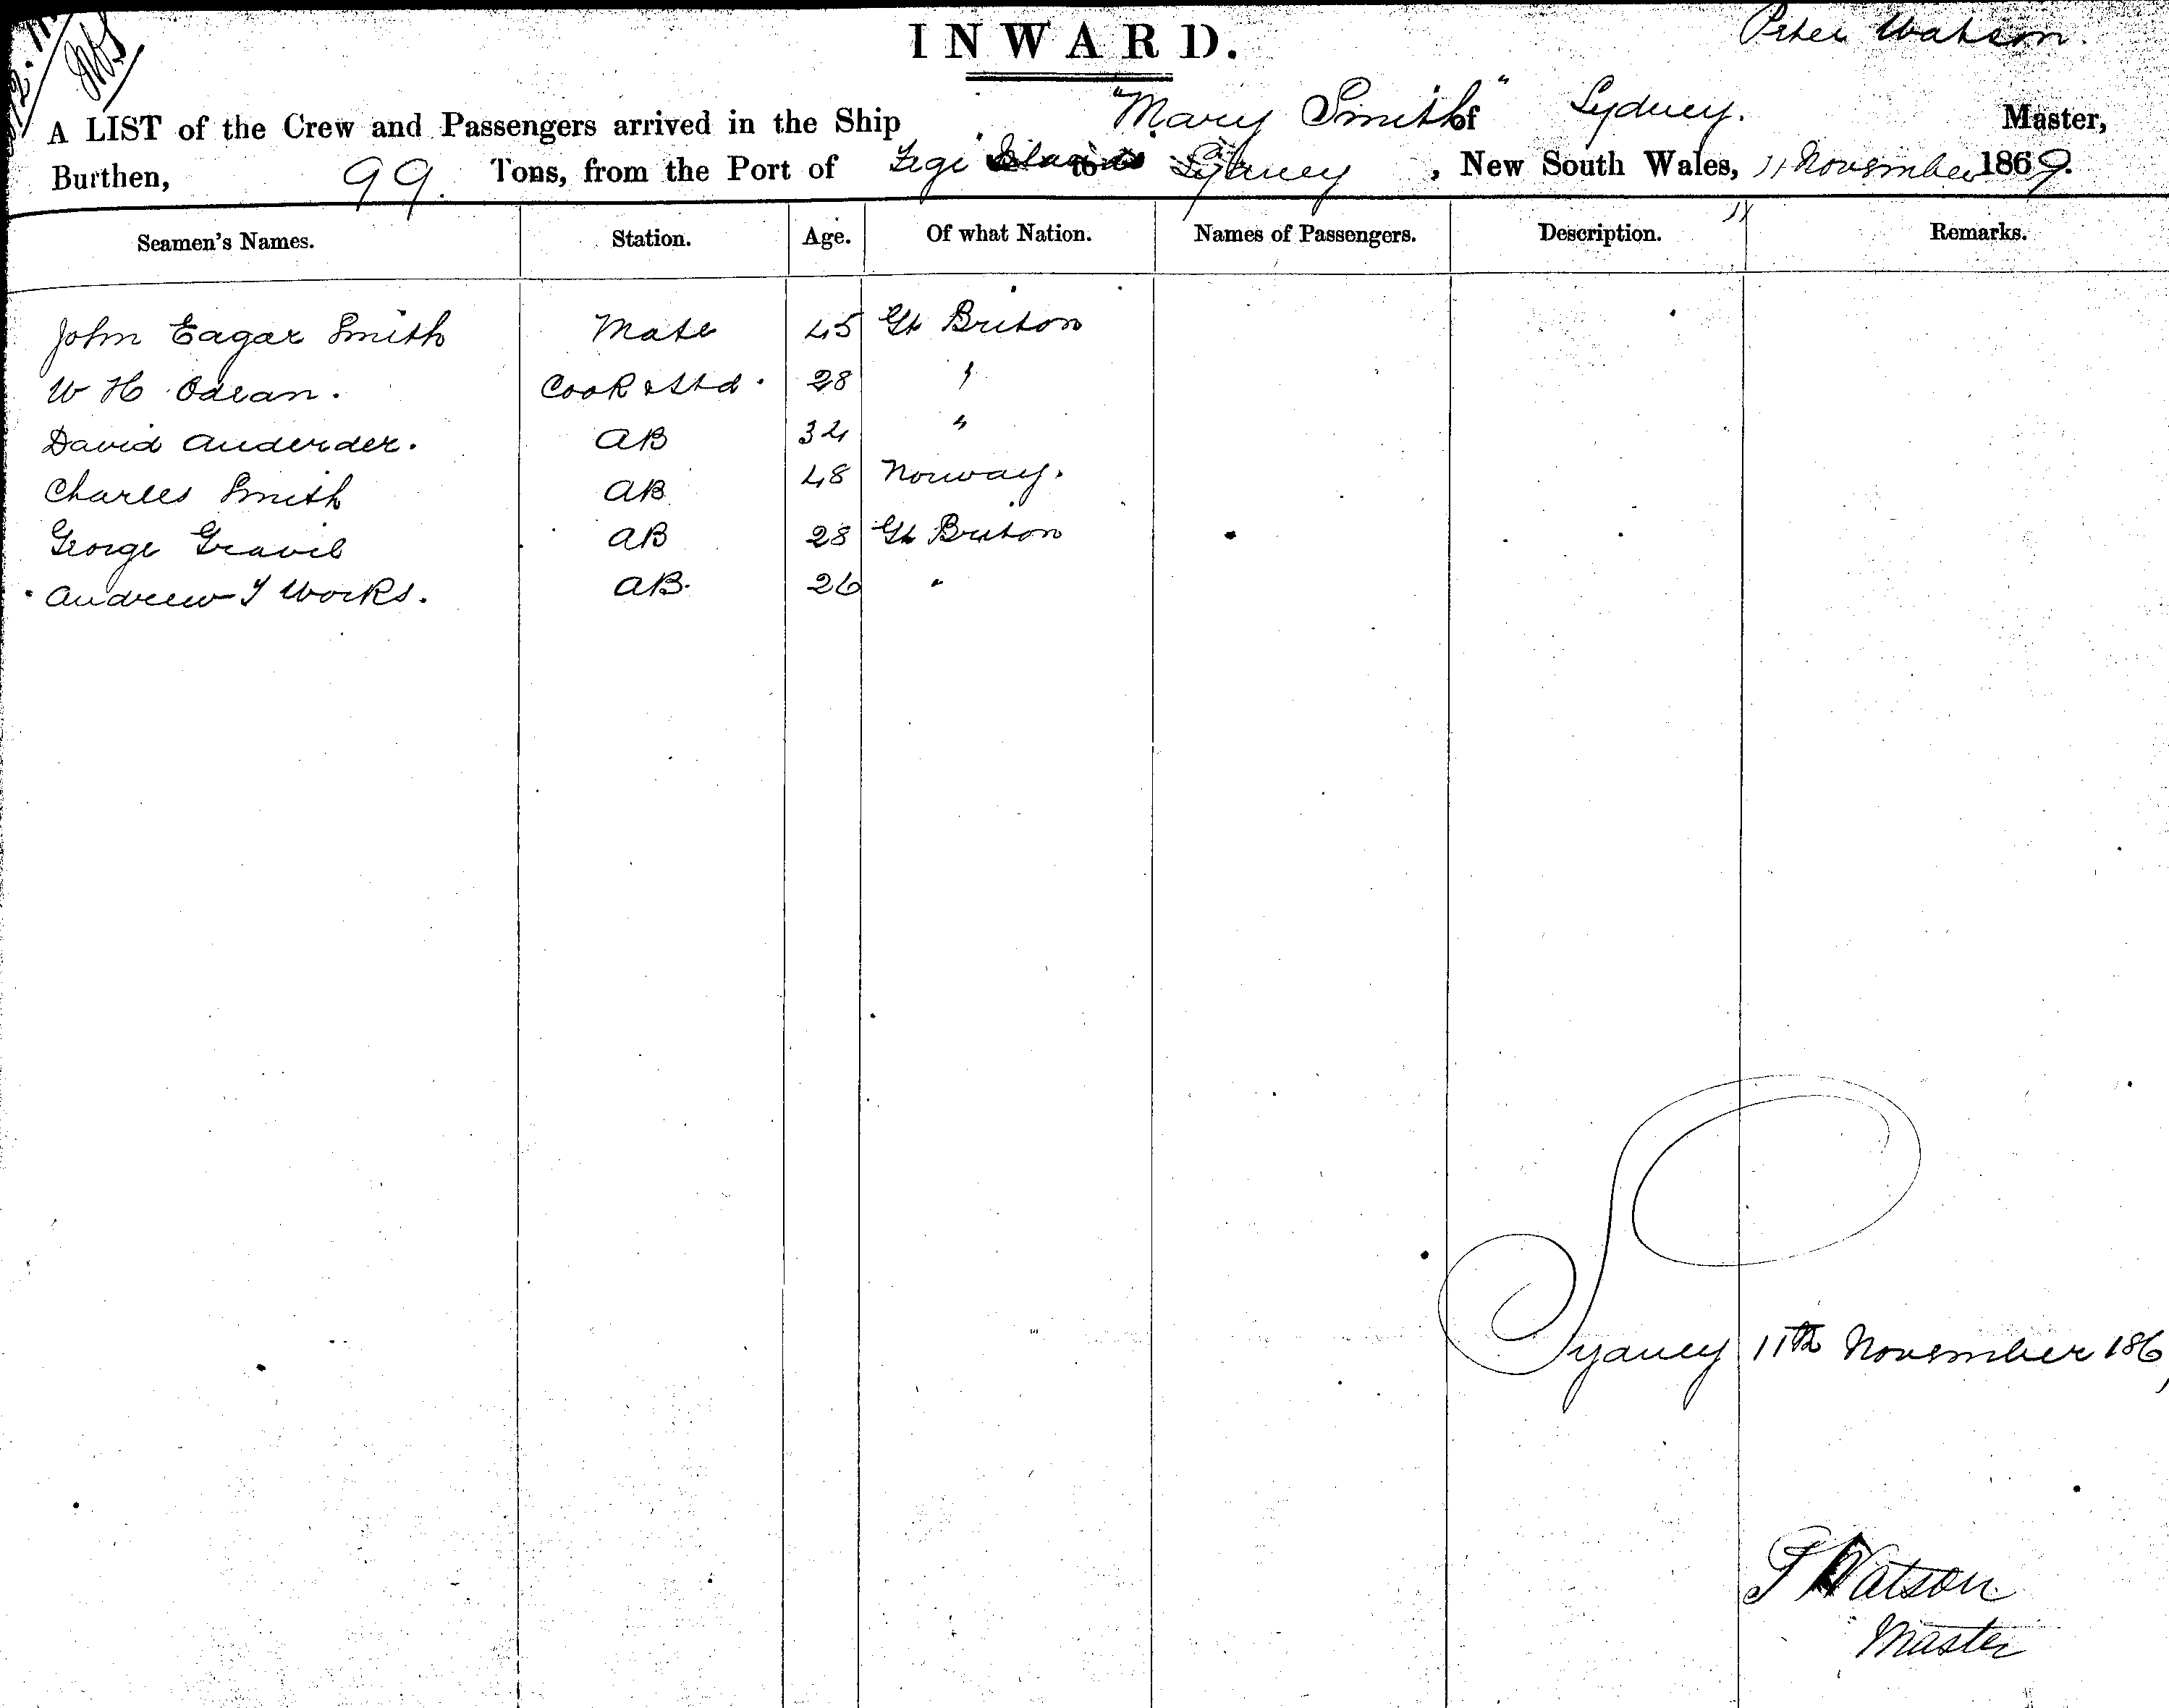 INWARD.
Peter Watson.
A LIST of the Crew and Passengers arrived in the Ship "Mary Smith" of Sydney. Master,
Burthen, 99. Tons, from the Port of Fegi Islands to Sydney, New South Wales, 11 November 1869.
Seamen's Names. Station. Age. Of what Nation. Names of Passengers. Description. Remarks.
John Eagar Smith Mate 45 Gt Briton
W H Odean. Cook & Std. 28 "
David Auderder. AB 34 "
Charles Smith AB 48 Norway.
George Gravil AB 28 Gt Briton
Andrew J Works. AB. 26 "
Sydney 11th November 186
P Watson
Master